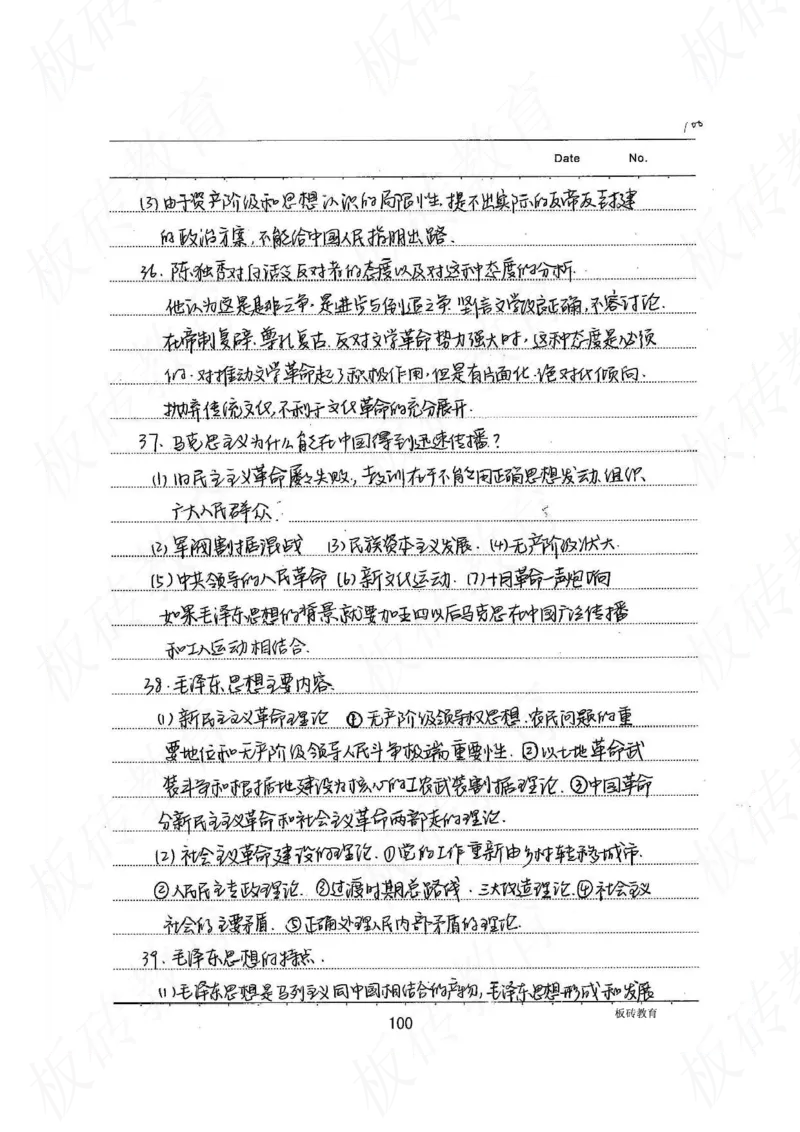 100
Date No.
(3)由于资产阶级和思想认识的局限性.提不出实际的反帝反封建
的政治方案,不能给中国人民指明出路.
36. 陈独秀对白话文反对者的态度以及对这种态度的分析.
他认为这是是非之争.是进步与倒退之争.坚信文学改良正确,不容讨论.
在帝制复辟.尊孔复古.反对文学革命势力强大时,这种态度是必须
的.对推动文学革命起了积极作用,但是有片面化.绝对化倾向.
抛弃传统文化,不利于文化革命的充分展开.
37. 马克思主义为什么能在中国得到迅速传播?
(1)旧民主主义革命屡屡失败,教训在于不能用正确思想发动.组织、
广大人民群众.
(2)军阀割据混战 (3)民族资本主义发展. (4)无产阶级壮大.
(5)中共领导的人民革命 (6)新文化运动. (7)十月革命一声炮响
如果毛泽东思想的背景就要加五四以后马克思在中国广泛传播
和工人运动相结合.
38.毛泽东思想主要内容.
(1)新民主主义革命理论 ①无产阶级领导权思想.农民问题的重
要地位和无产阶级领导人民斗争极端重要性.②以土地革命武
装斗争和根据地建设为核心的工农武装割据理论.③中国革命
分新民主主义革命和社会主义革命两部走的理论.
(2)社会主义革命建设的理论.①党的工作重新由乡村转移城市.
②人民民主专政理论.③过渡时期总路线.三大改造理论.④社会主义
社会的主要矛盾.⑤正确处理人民内部矛盾的理论.
39.毛泽东思想的特点.
(1)毛泽东思想是马列主义同中国相结合的产物,毛泽东思想形成和发展
板砖教育
100